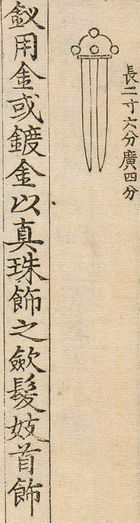 長二寸六分廣四分
釵用金或鍍金以真珠飾之歛髮妓首飾